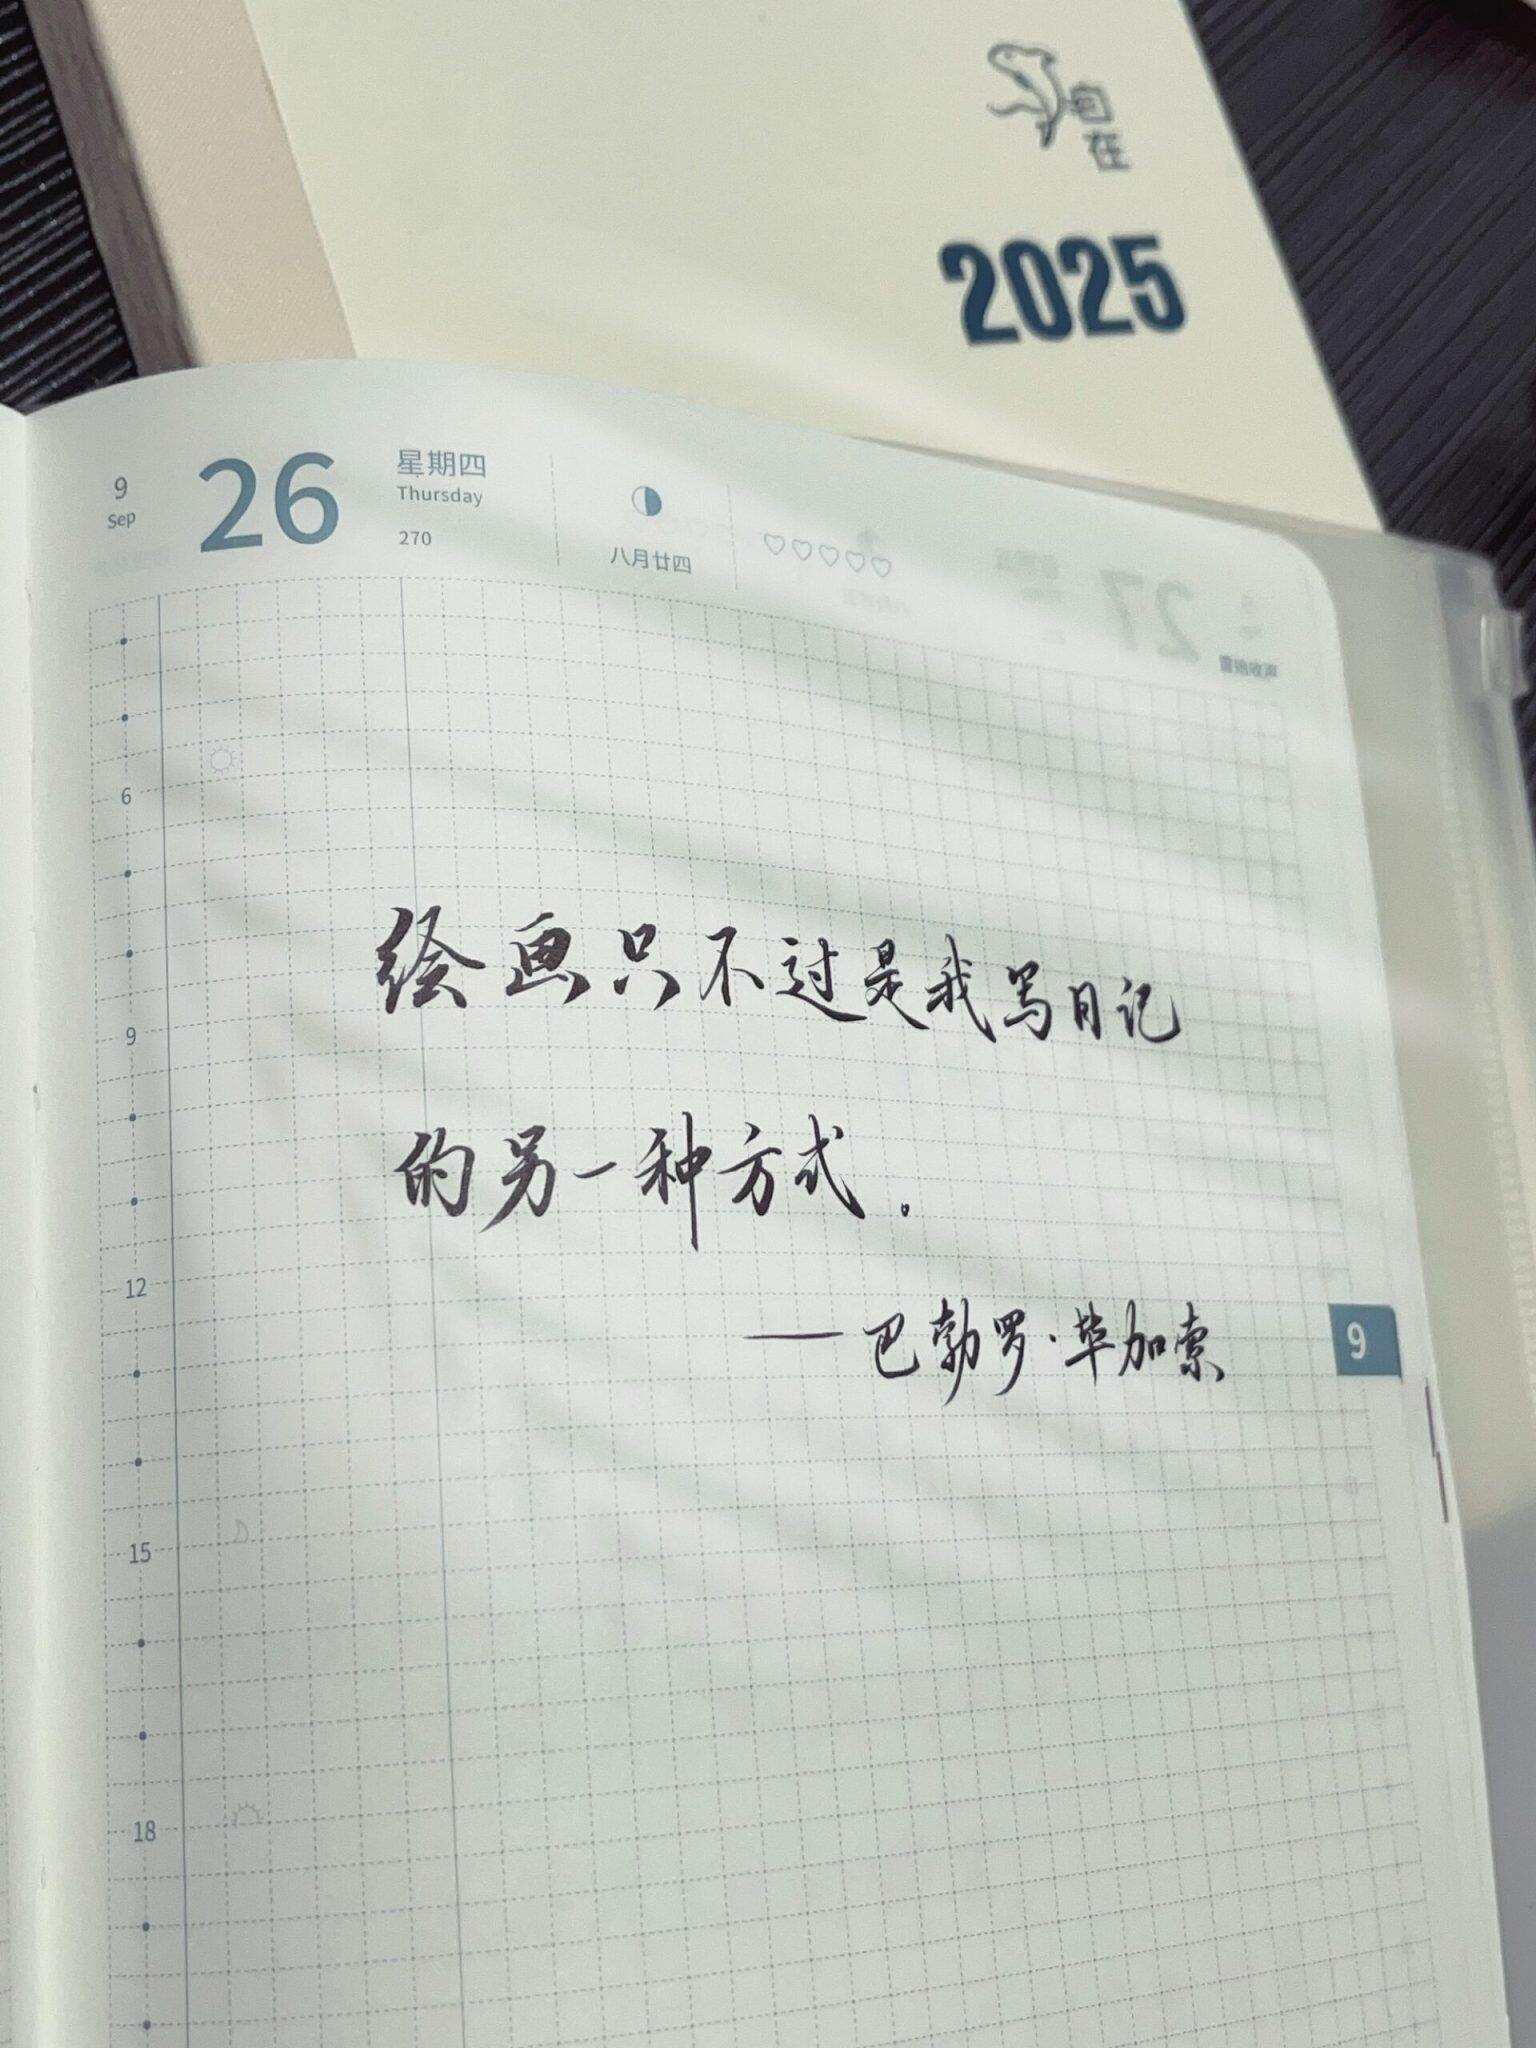 自在
2025
9
Sep
26
星期四
Thursday
270
八月廿四
27
雷始收声
6
9
12
15
18
绘画只不过是我写日记
的另一种方式。
——巴勃罗·毕加索
9